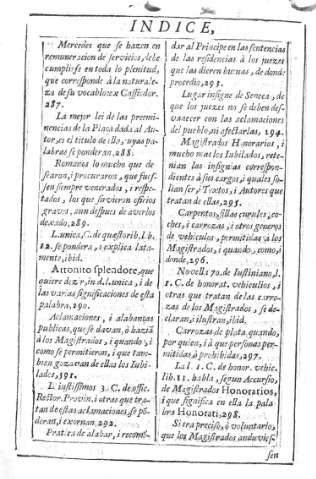 INDICE,
Mercedes que se hazen en
remuneracion de servicios, debe
cumplirse en toda lo plenitud,
que corresponde à la naturale-
za de su vocablo ex Cassiodor.
287.
La mejor lei de las preemi-
nencias de la Plaça dada al Au-
tor, es el titulo de ella, cuyas pala-
labras se ponderan, 288.
Romanos lo mucho que de
searon, i procuraron, que fues-
sen siempre venerados, i respe-
tados, los que sirvieron oficios
graves, aun despues de averlos
dexado, 289.
L. unica, C. de quæstorib. lib.
12. se pondera, i explica lata-
mente, ibid.
Attonito splendore, que
quiere dezir, in d. l. unica, i de
las varias significaciones de esta
palabra, 290.
Aclamaciones, i alabanças
publicas, que se davan, ò haziã
à los Magistrados, i quando, i
como se permitieran, i que tam-
bien gozavan de ellas los Iubi-
lados, 391.
L. iustissimos 3. C. de offic.
Rector. Provin. i otras que tra-
tan de estas aclamaciones, se põ-
deran, i exornan, 292.
Pratica de alabar, i recomẽ-
dar al Principe en las sentencias
de las residencias à los juezes
que las dieren buenas, de donde
procedio, 293.
Lugar insigne de Seneca, de
que los juezes no se deben des-
vanecer con las aclamaciones
del pueblo, ni afectarlas, 294.
Magistrados Honorarios, i
mucho mas los Iubilados, rete-
nian las insignias correspon-
dientes à sus cargos, i quales so-
lian ser, i Textos, i Autores que
tratan de ellas, 295.
Carpentos, sillas curules, co-
ches, i carrozas, i otros generos
de vehiculos, permitidas à los
Magistrados, i quando, i como, i
donde, 296.
Novella 70. de Iustiniano, l.
1. C. de honorat. vehicullos, i
otras que tratan de las carro-
zas de los Magistrados, se de-
claran, i ilustran, ibid.
Carrozas de plata, quando,
por quien, i à que personas per-
mitidas, ò prohibidas, 297.
La l. 1. C. de honor. vehic.
lib. 11. habla, segun Accursio,
de Magistrados Honorarios,
i que significa en ella la pala
bra Honorati, 298.
Si era preciso, ò voluntario,
que los Magistrados anduvies-
sen